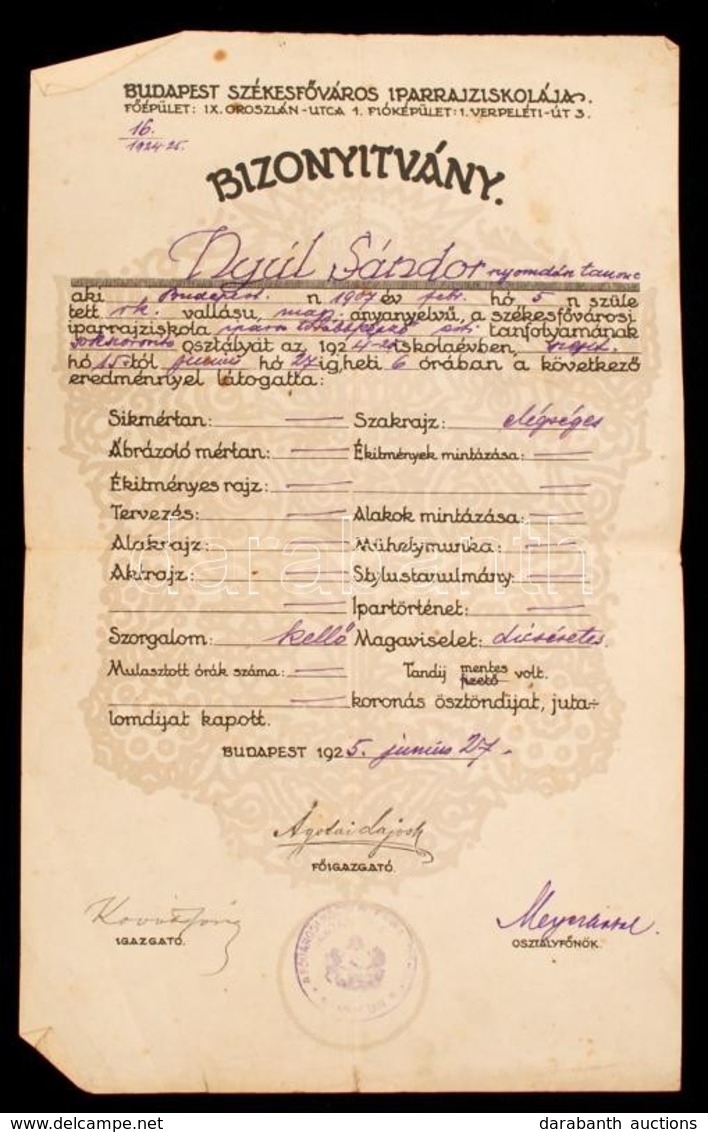 BUDAPEST SZÉKESFŐVÁROS IPARRAJZISKOLÁJA.
FŐÉPÜLET: IX. OROSZLÁN-UTCA 1. FIÓKÉPÜLET: I. VERPELÉTI-ÚT 3.
16.
1924-25.
BIZONYITVÁNY.
Nyúl Sándor nyomdász tanonc
aki Budapest. n 1907 év febr. hó 5 n szüle
tett rk. vallásu, magy. anyanyelvű, a székesfővárosi
iparrajziskola iparos továbbképző esti tanfolyamának
osztályát az 1924-25 iskolaévben, szept.
hó 15 től junius hó 27 ig, heti 6 órában a következő
eredménnyel látogatta:
Sikmértan: — Szakrajz: elégséges
Ábrázoló mértan: — Ékitmények mintázása: —
Ékitményes rajz: — —
Tervezés: — Alakok mintázása: —
Alakrajz: — Műhelymunka: —
Aktrajz: — Stylustanulmány: —
— Ipartörténet: —
Szorgalom: kellő Magaviselet: dicséretes.
Mulasztott órák száma: — Tandij mentes fizető volt.
— koronás ösztöndijat, juta-
lomdijat kapott.
BUDAPEST 1925. junius 27.
Ágotai Lajos
FŐIGAZGATÓ.
IGAZGATÓ.
OSZTÁLYFŐNÖK.
darabanth
darabanth auctions